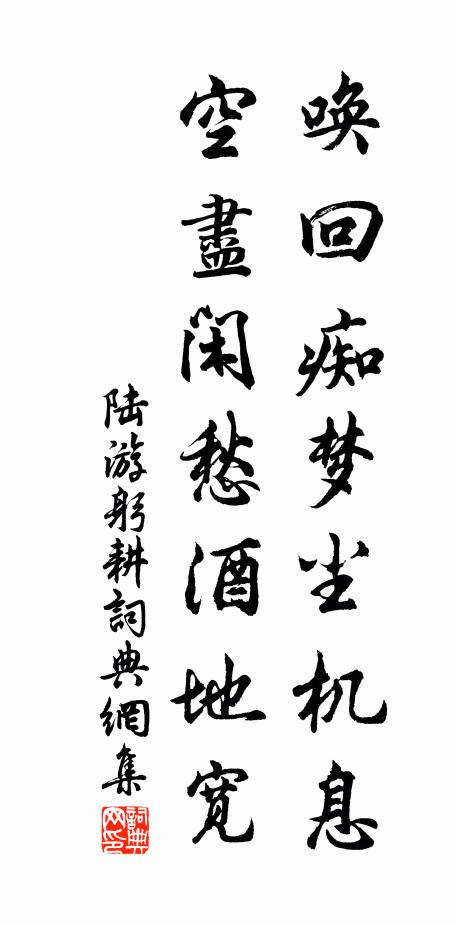 唤回痴梦尘机息
空盡闲愁酒地宽
陆游躬耕詞典網集
詞典网印